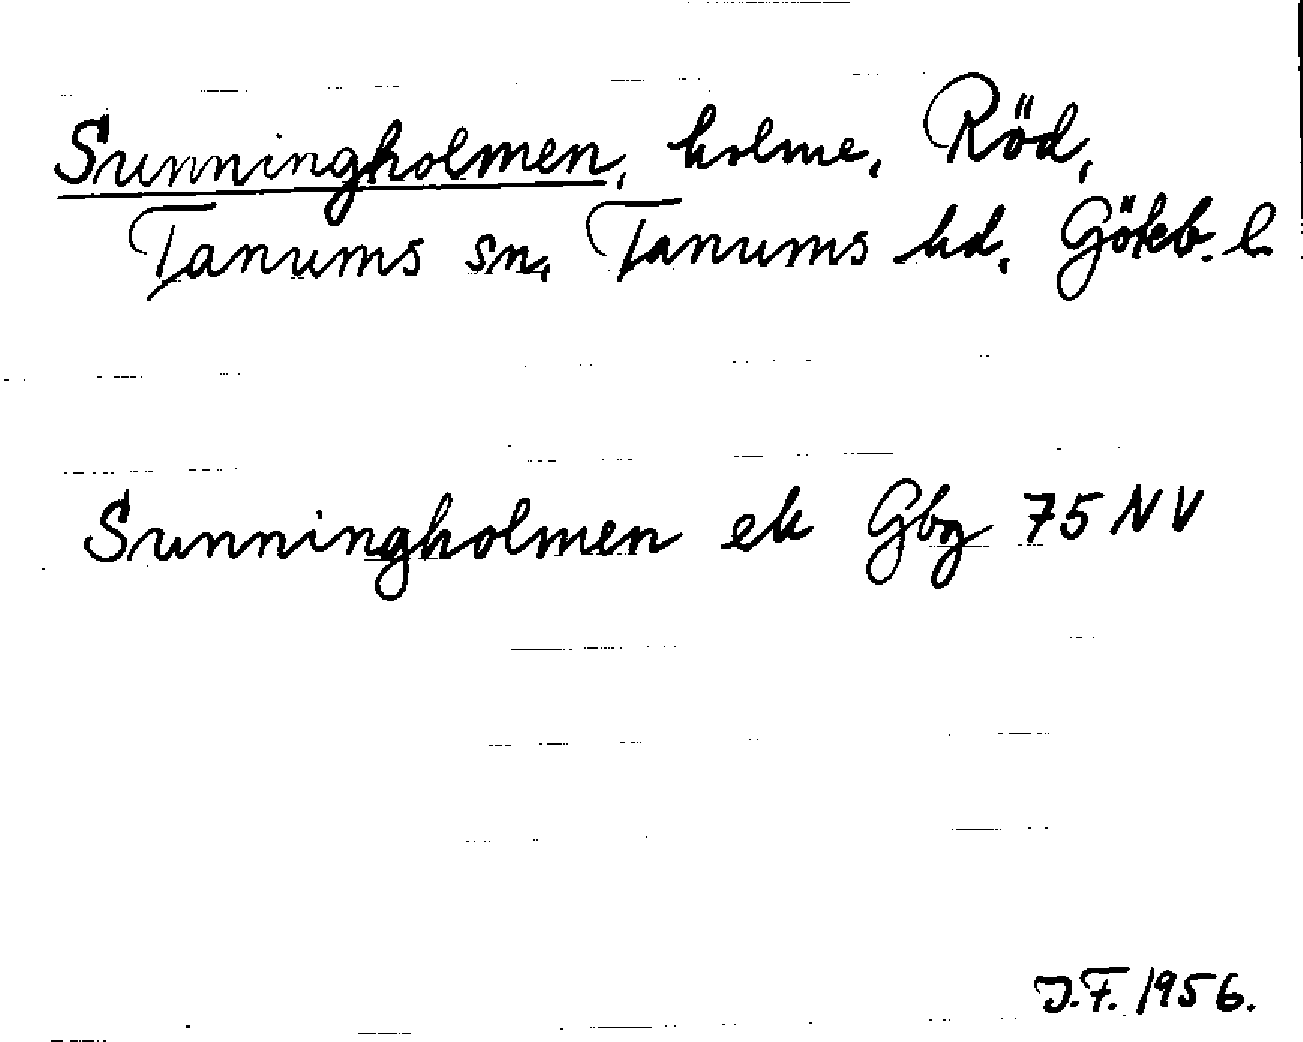 Sunningholmen, holme, Röd,
Tanums sn, Tanums hd, Göteb. l
Sunningholmen ek Gbg 75 NV
J.F. 1956.